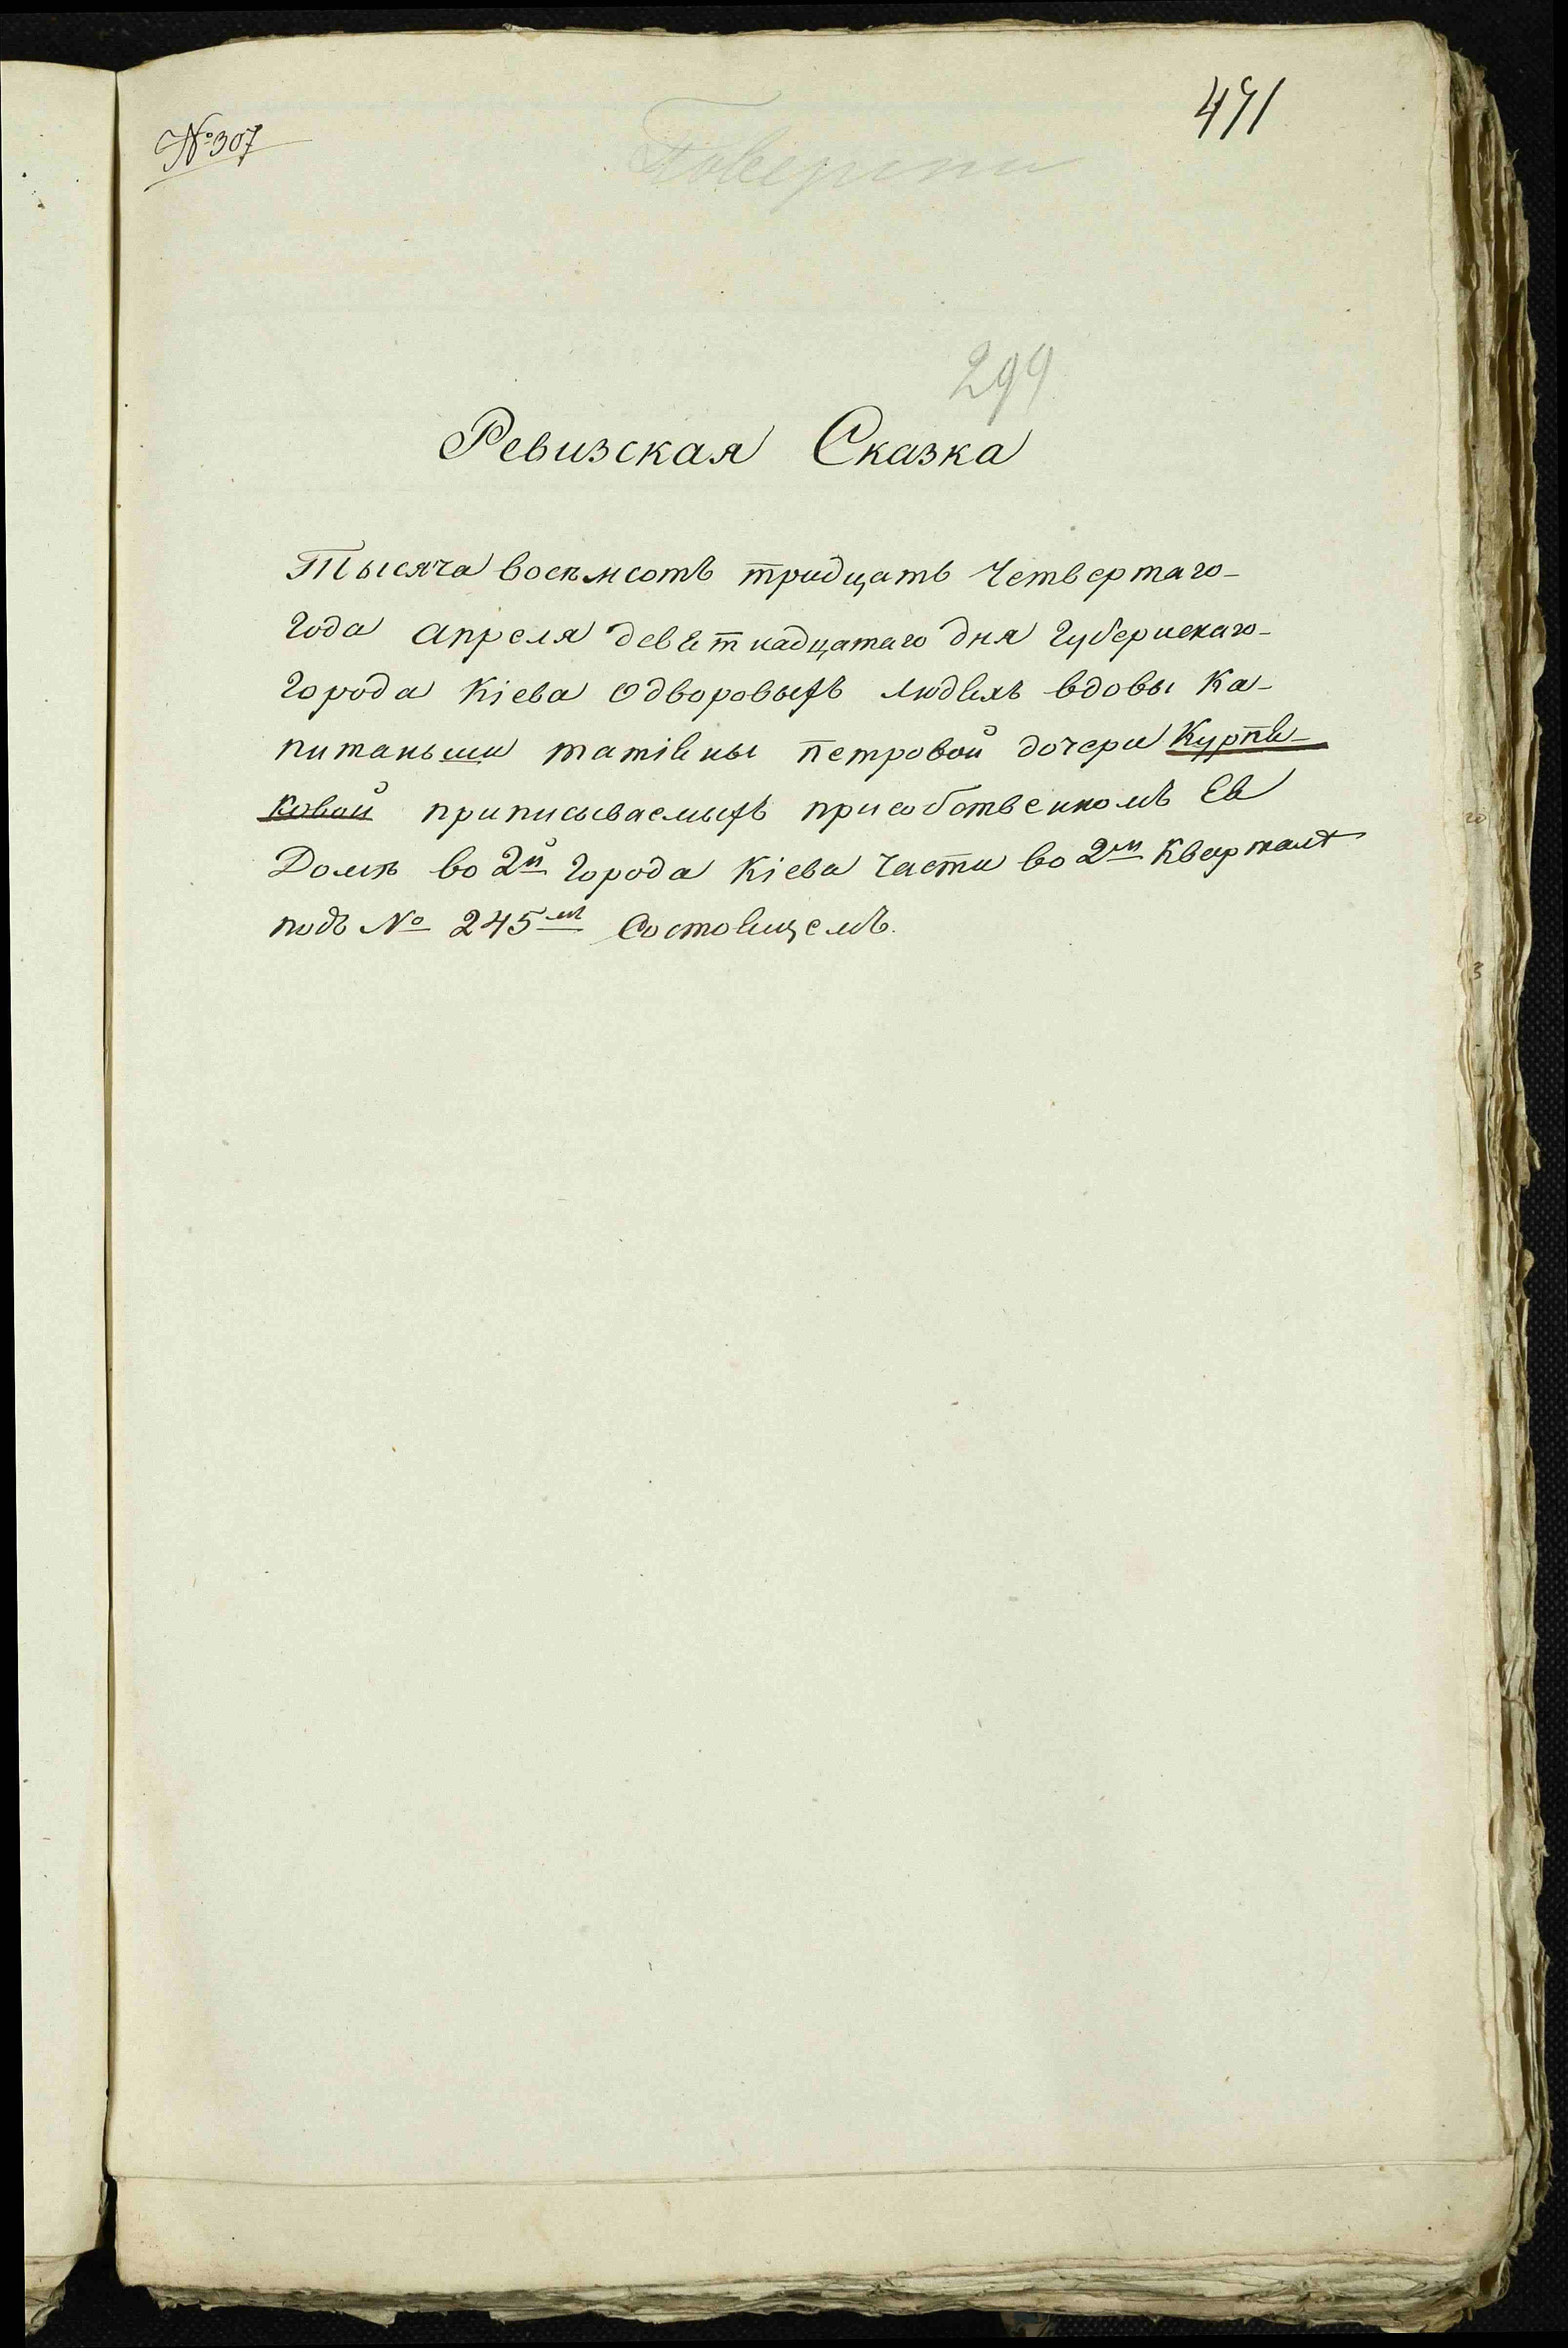 № 307
471
Поверити
299
Ревизская Сказка
Тысяча восемсотъ тридцать Четвертаго-
года апреля деветнадцатаго дня губернскаго-
города Кіева О дворовыхъ людяхъ вдовы Ка-
питаньши татіяны петровой дочери Курпя-
ковой приписываемыхъ при собственномъ Ея
Доме во 2й города Кіева части во 2м Квартале
подъ № 245м Состоящемъ.